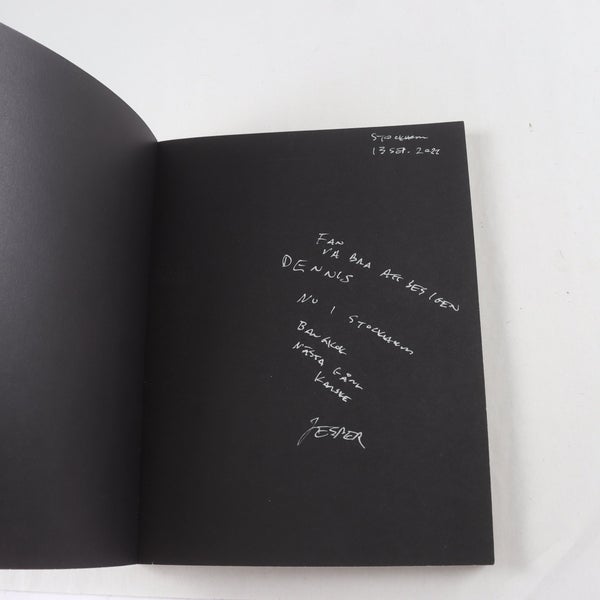 STOCKHOLM
13 SEP. 2022
FAN
VA BRA ATT SES IGEN
DENNIS
NU I STOCKHOLM
BANGKOK
NÄSTA GÅNG
KANSKE
JESPER